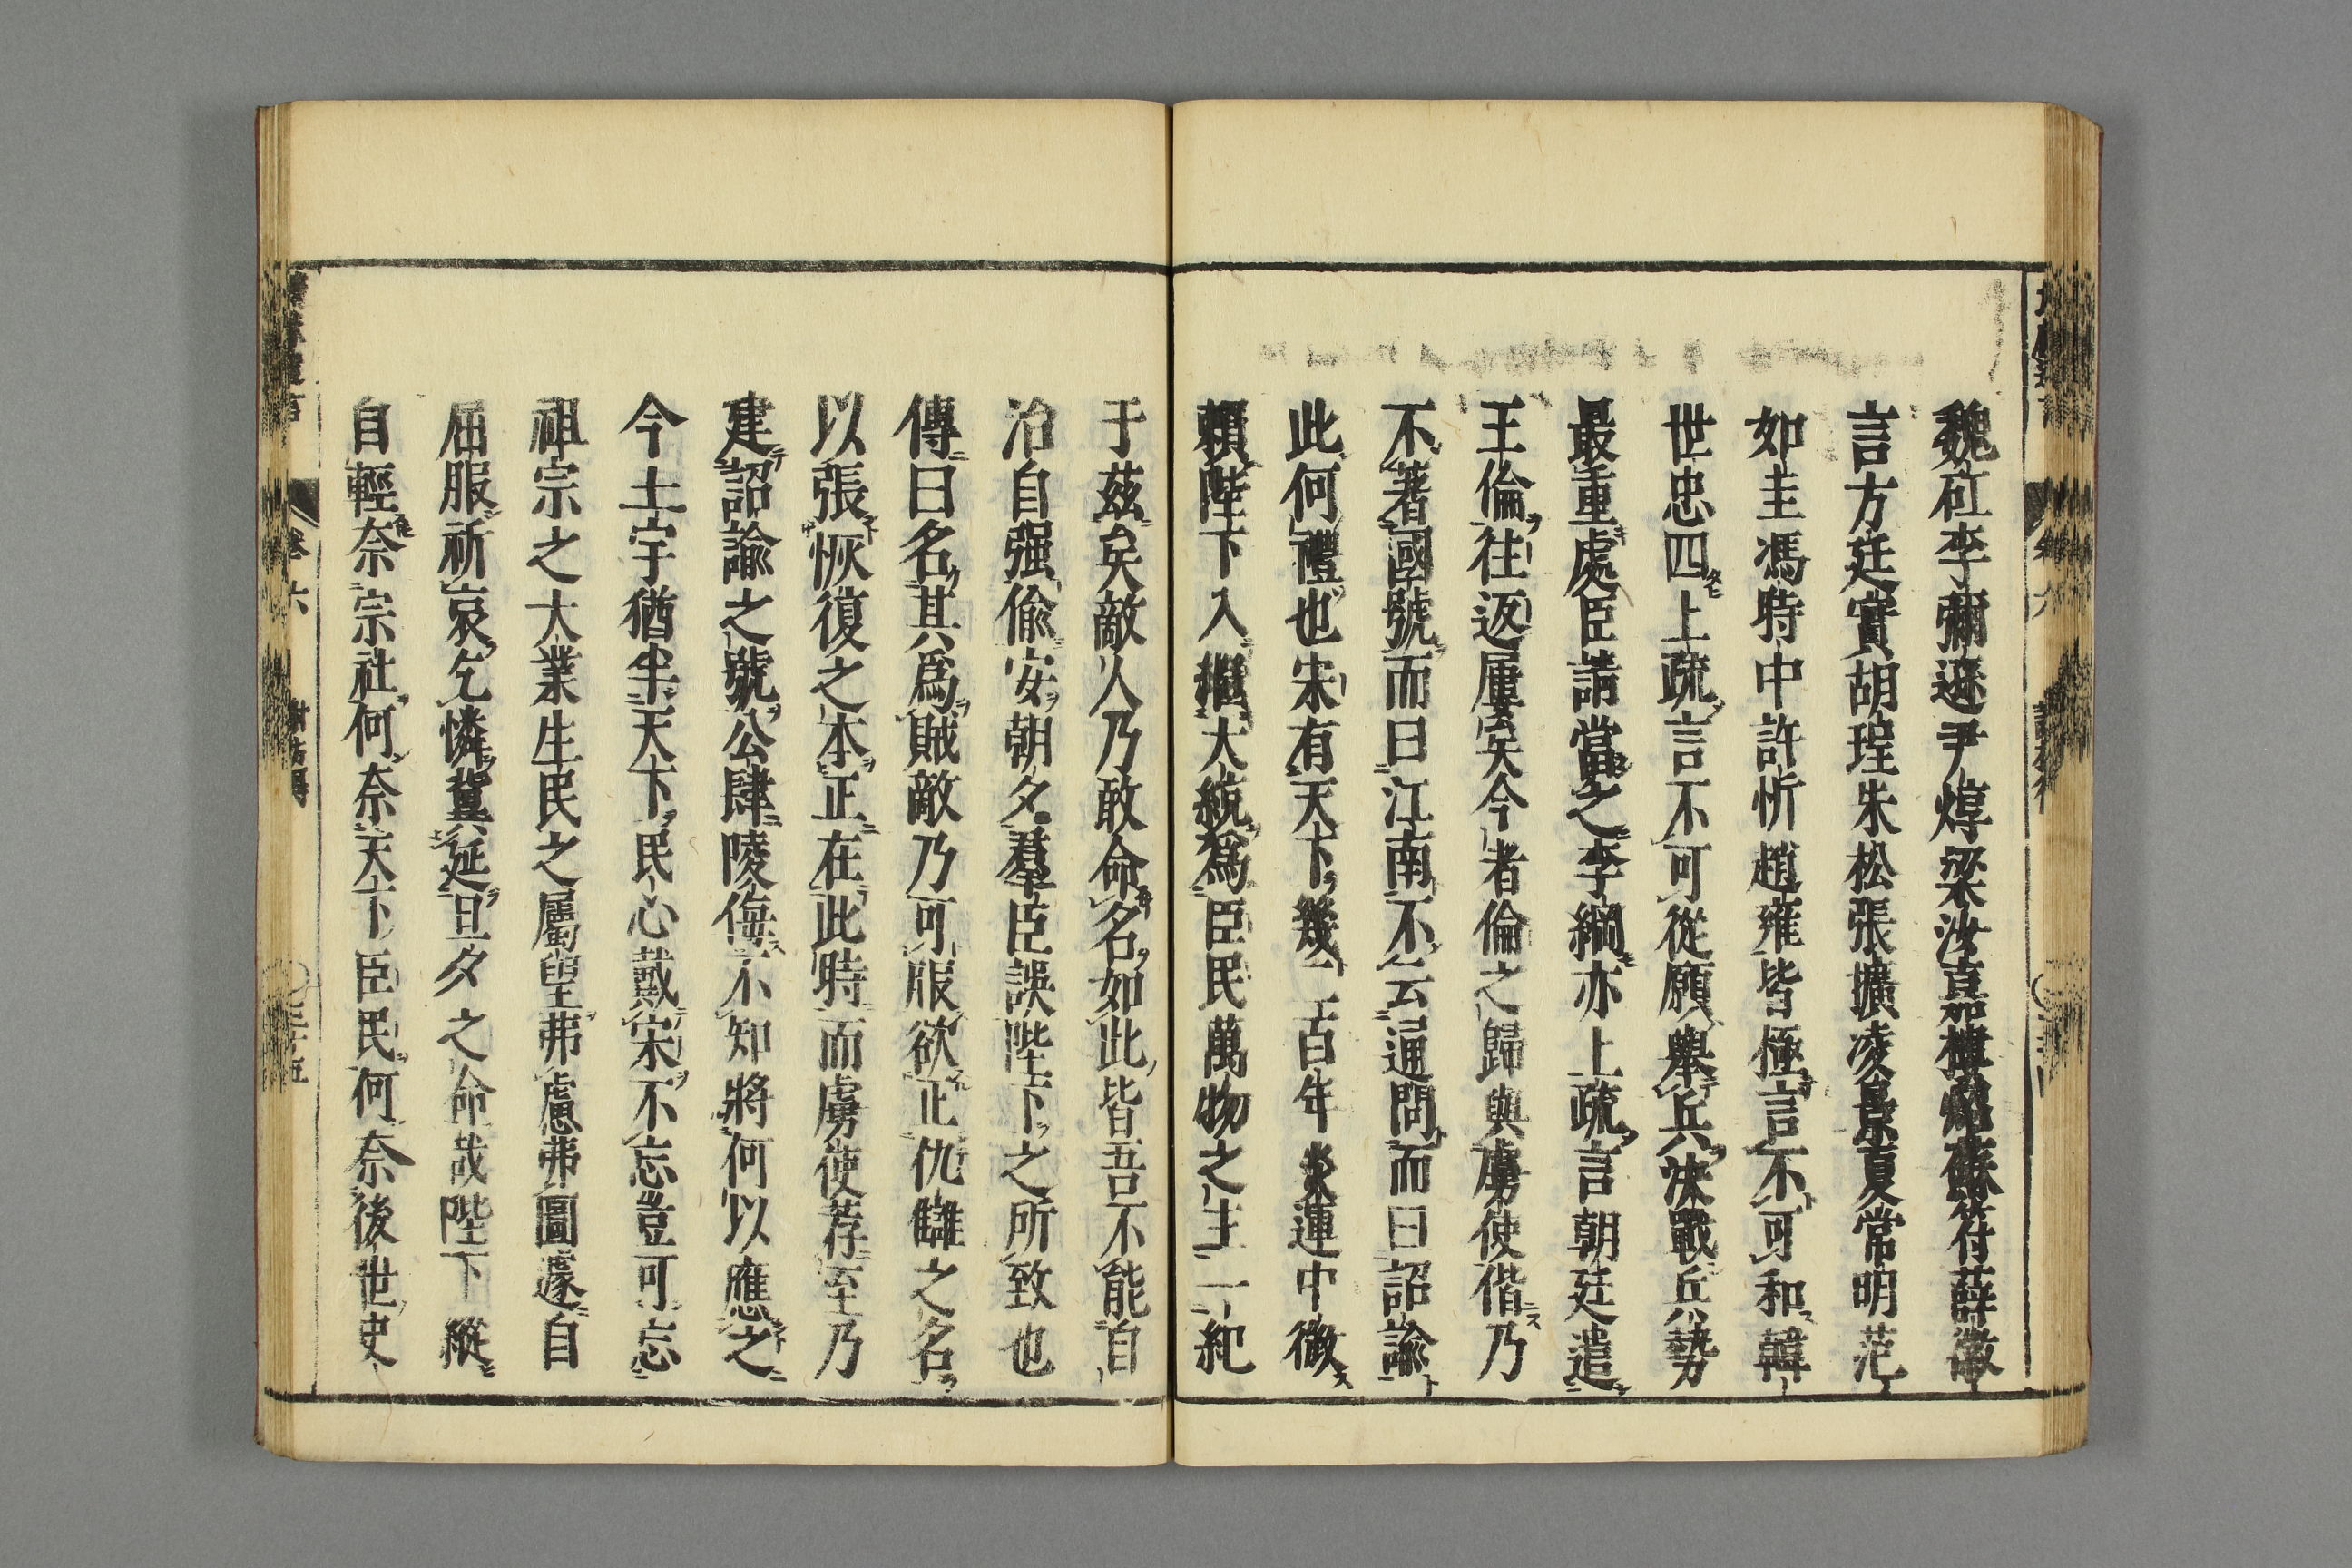 魏矼李彌遜尹焞梁汝嘉樓炤蘇符薛徽
言方廷實胡珵朱松張擴凌景夏常明范
如圭馮時中許忻趙雍皆極言不可和韓
世忠四上疏言不可從願舉兵決戰兵勢
最重處臣請當之李綱亦上疏言朝廷遣
王倫往返屢矣今者倫之歸與虜使偕乃
不著國號而曰江南不云通問而曰詔諭
此何禮也宋有天下幾二百年炎運中微
賴陛下入繼大統爲臣民萬物之主一紀
于茲矣敵人乃敢命名如此皆吾不能自
治自强偷安朝夕羣臣誤陛下之所致也
傳曰名其爲賊敵乃可服欲正仇讎之名
以張恢復之本正在此時而虜使荐至乃
建詔諭之號公肆陵侮不知將何以應之
今土宇猶半天下民心戴宋不忘豈可忘
祖宗之大業生民之屬望弗慮弗圖遽自
屈服祈哀乞憐冀延旦夕之命哉陛下縱
自輕奈宗社何奈天下臣民何奈後世史
卷六